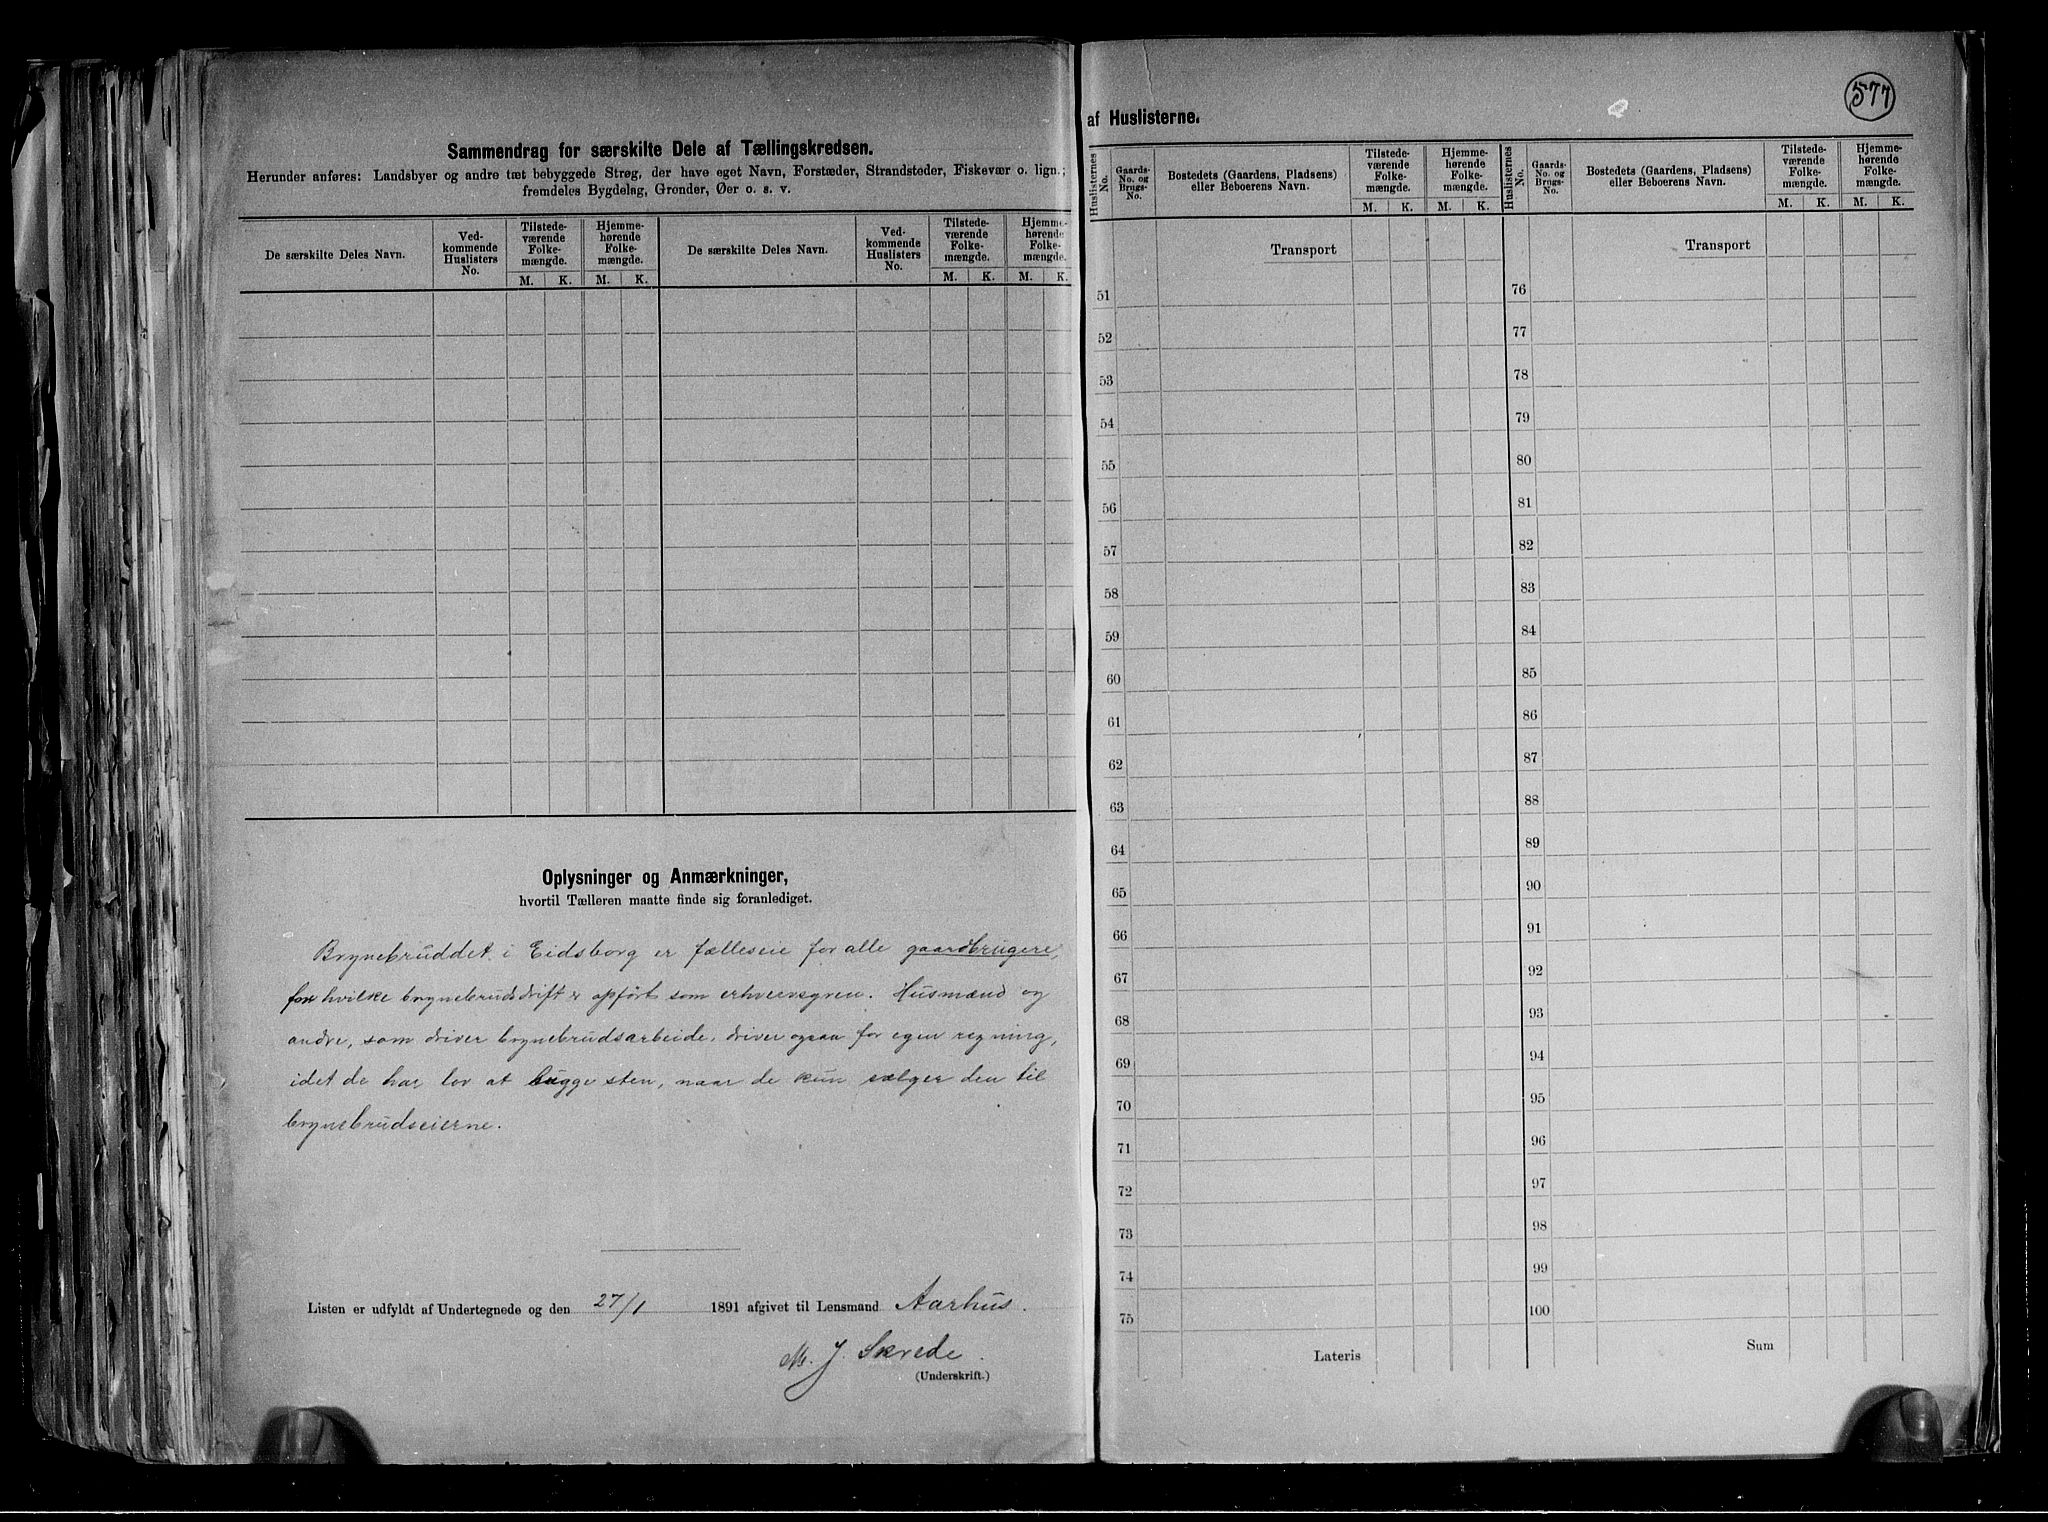 Sammendrag for særskilte Dele af Tællingskredsen.
Herunder anføres: Landsbyer og andre tæt bebyggede Strøg, der have eget Navn, Forstæder, Strandsteder, Fiskevær o. lign.;
fremdeles Bygdelag, Grender, Øer o. s. v.
De særskilte Deles Navn.
Ved-
kommende
Huslisters
No.
Tilstede-
værende
Folke-
mængde.
Hjemme-
hørende
Folke-
mængde.
M. K. M. K.
De særskilte Deles Navn.
Ved-
kommende
Huslisters
No.
Tilstede-
værende
Folke-
mængde.
Hjemme-
hørende
Folke-
mængde.
M. K. M. K.
Oplysninger og Anmærkninger,
hvortil Tælleren maatte finde sig foranlediget.
Brynebruddet i Eidsborg er fælleseie for alle gaardbrugere,
for hvilke brynebrudsdrift er opført som erhvervsgren. Husmænd og
andre, som driver brynebrudsarbeide, driver ogsaa for egen regning,
idet de har lov at bugge sten, naar de kun sælger den til
brynebrudseierne.
Listen er udfyldt af Undertegnede og den 27/1 1891 afgivet til Lensmand Aarhus.
M. J. Skrede.
(Underskrift.)
577
af Huslisterne.
Huslisternes
No.
Gaards-
No. og
Brugs-
No.
Bostedets (Gaardens, Pladsens)
eller Beboerens Navn.
Tilstede-
værende
Folke-
mængde.
Hjemme-
hørende
Folke-
mængde.
M. K. M. K.
Transport
51
52
53
54
55
56
57
58
59
60
61
62
63
64
65
66
67
68
69
70
71
72
73
74
75
Lateris
Huslisternes
No.
Gaards-
No. og
Brugs-
No.
Bostedets (Gaardens, Pladsens)
eller Beboerens Navn.
Tilstede-
værende
Folke-
mængde.
Hjemme-
hørende
Folke-
mængde.
M. K. M. K.
Transport
76
77
78
79
80
81
82
83
84
85
86
87
88
89
90
91
92
93
94
95
96
97
98
99
100
Sum